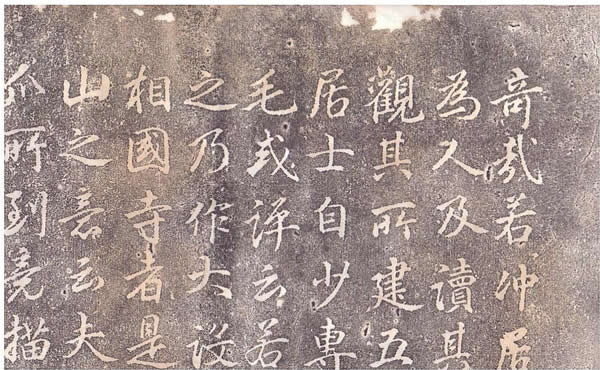 奇哉若冲居
為人及讀其
觀其所建五
居士自少專
毛或評云若
之乃作大設
相國寺者是
山之意云夫
所到竟描